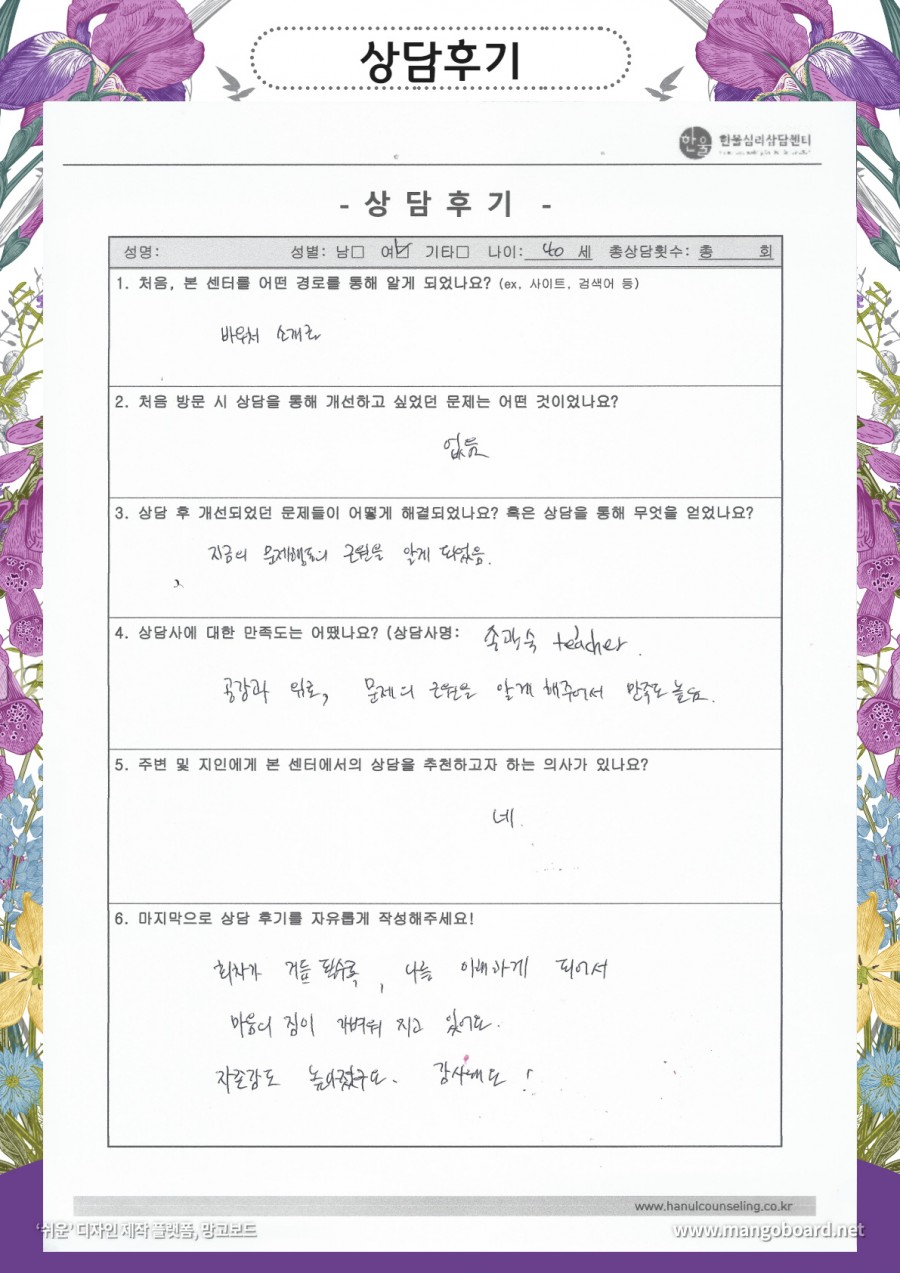 상담후기
한울 한울심리상담센터
- 상 담 후 기 -
성명: 성별: 남□ 여☑ 기타□ 나이: 40 세 총상담횟수: 총 회
1. 처음, 본 센터를 어떤 경로를 통해 알게 되었나요? (ex. 사이트, 검색어 등)
바우처 소개로
2. 처음 방문 시 상담을 통해 개선하고 싶었던 문제는 어떤 것이었나요?
없음
3. 상담 후 개선되었던 문제들이 어떻게 해결되었나요? 혹은 상담을 통해 무엇을 얻었나요?
지금의 문제행동의 근원을 알게 되었음.
4. 상담사에 대한 만족도는 어땠나요? (상담사명: teacher.
공감과 위로, 문제의 근원을 알게 해주어서 만족도 높음.
5. 주변 및 지인에게 본 센터에서의 상담을 추천하고자 하는 의사가 있나요?
네.
6. 마지막으로 상담 후기를 자유롭게 작성해주세요!
회차가 거듭 될수록, 나를 이해하게 되어서
마음의 짐이 가벼워 지고 있어요.
자존감도 높아졌구요. 감사해요!
www.hanulcounseling.co.kr
'쉬운' 디자인 제작 플랫폼, 망고보드
www.mangoboard.net